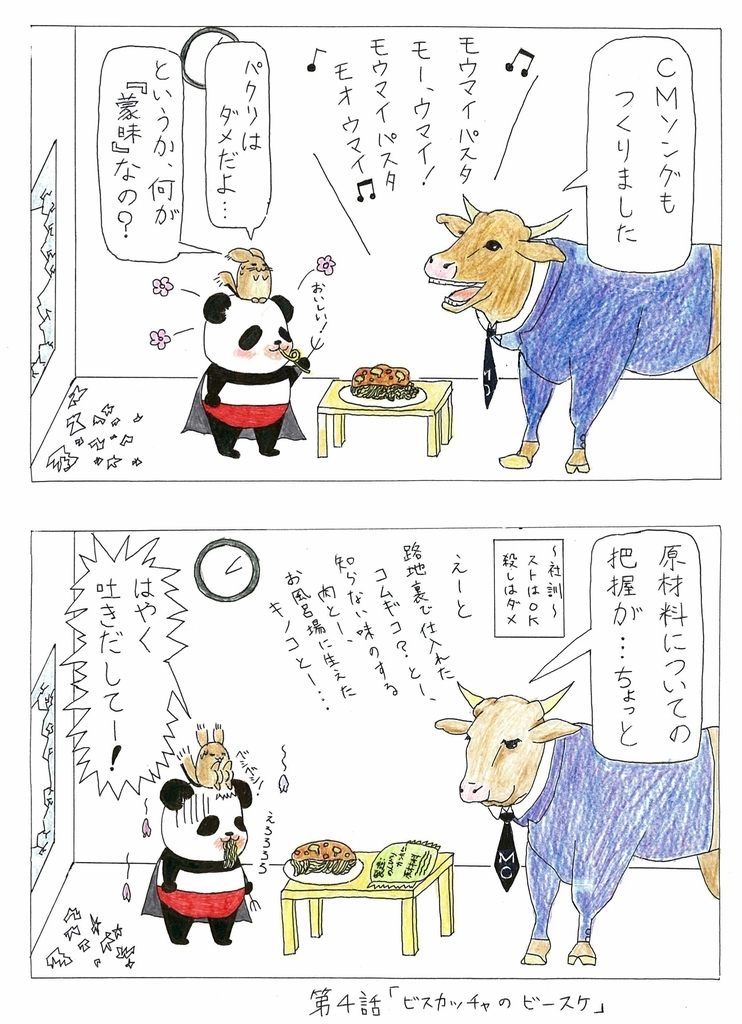 CMソングも
つくりました
モウマイパスタ
モー、ウマイ!
モウマイパスタ
モオウマイ
パクリは
ダメだよ…
というか、何が
『蒙昧』なの?
おいしい!
MC
原材料についての
把握が…ちょっと
〜社訓〜
ストはOK
殺しはダメ
えーと
路地裏で仕入れた
コムギコ?と、
知らない味のする
肉と、
お風呂場に生えた
キノコとー…
はやく
吐きだしてー!
ベシベシ!
えろろろろ
MC
第4話「ビスカッチャの ビースケ」